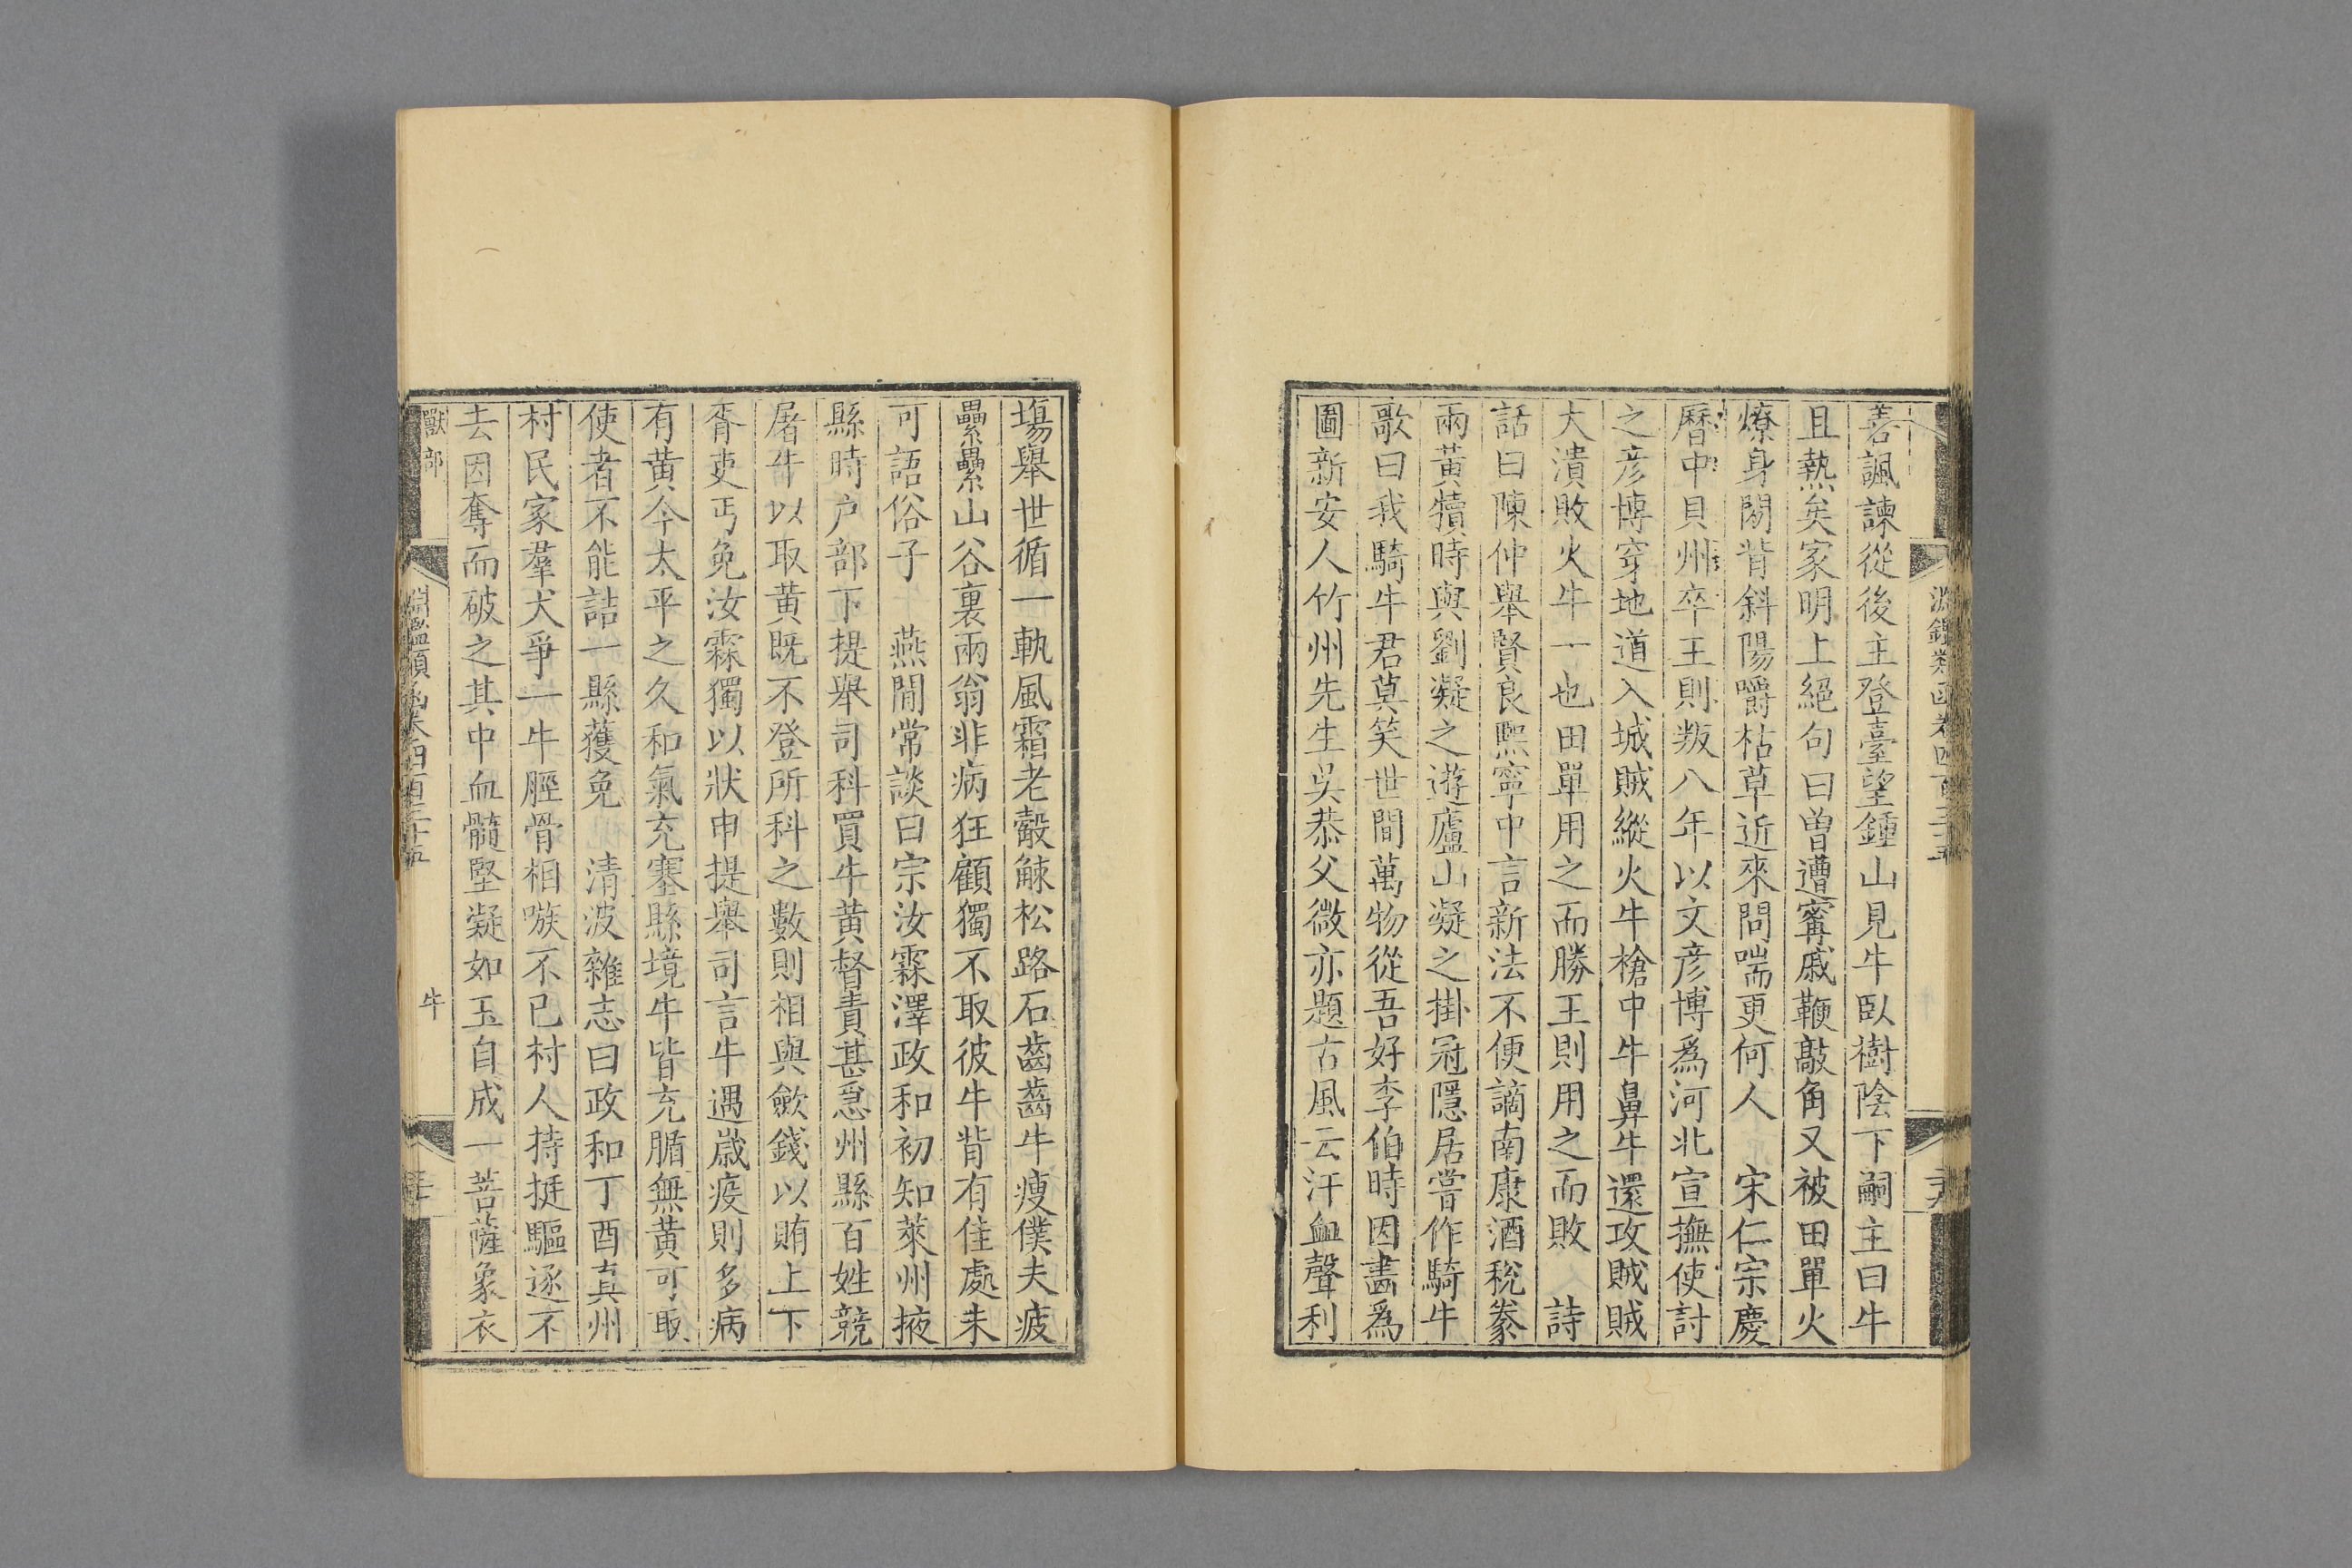 善諷諫從後主登臺望鍾山見牛臥樹陰下嗣主曰牛
且熱矣家明上絕句曰曾遭寗戚鞭敲角又被田單火
燎身閑背斜陽嚼枯草近來問喘更何人　宋仁宗慶
曆中貝州卒王則叛八年以文彦博爲河北宣撫使討
之彦博穿地道入城賊縱火牛槍中牛鼻牛還攻賊賊
大潰敗火牛一也田單用之而勝王則用之而敗　詩
話曰陳仲舉賢良熙寧中言新法不便謫南康酒稅豢
兩黃犢時與劉凝之遊廬山凝之掛冠隱居嘗作騎牛
歌曰我騎牛君莫笑世間萬物從吾好李伯時因畵爲
圖新安人竹州先生吳恭父微亦題古風云汗血聲利
塲舉世循一軌風霜老觳觫松路石齒齒牛瘦僕夫疲
纍纍山谷裏兩翁非病狂顧獨不取彼牛背有佳處未
可語俗子　燕閒常談曰宗汝霖澤政和初知萊州掖
縣時户部下提舉司科買牛黄督責甚急州縣百姓競
屠牛以取黄既不登所科之數則相與歛錢以賄上下
胥吏丐免汝霖獨以狀申提舉司言牛遇歲疫則多病
有黄今太平之久和氣充塞縣境牛皆充腯無黄可取
使者不能詰一縣獲免　清波雜志曰政和丁酉真州
村民家羣犬爭一牛脛骨相嗾不已村人持挺驅逐不
去因奪而破之其中血髓堅凝如玉自成一菩薩象衣
獸部
淵鑑類函卷四百三十五
牛